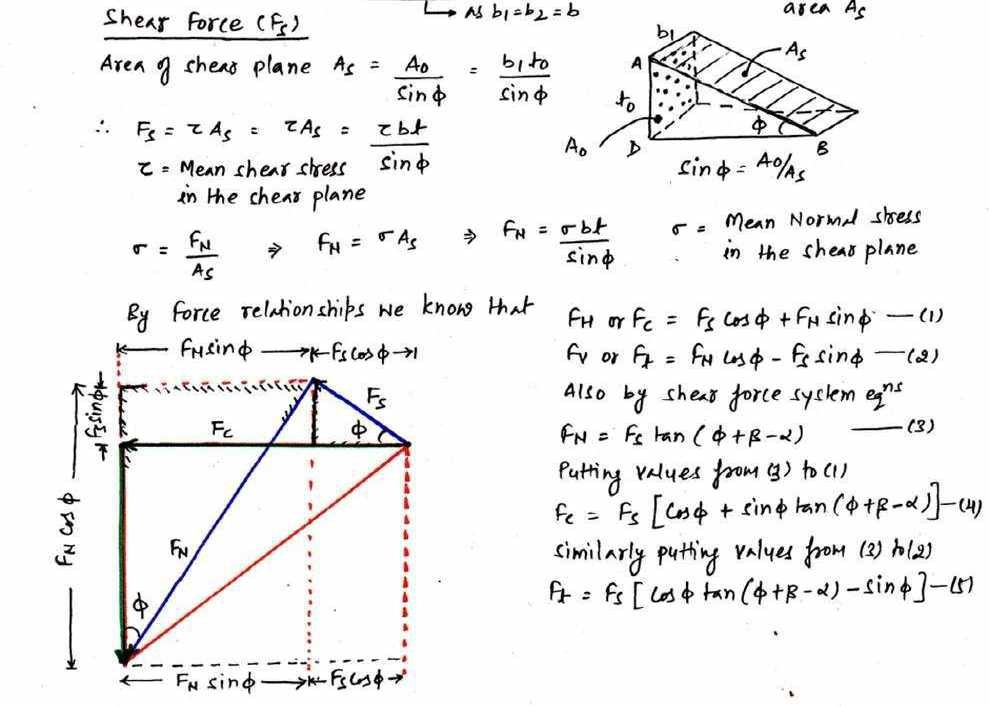 Shear Force (Fs)
↳ as b1=b2=b
area As
Area of shear plane As = A0/sinφ = b1t0/sinφ
∴ Fs = τAs = τAs = τbt/sinφ
τ = Mean shear stress
in the shear plane
b1
A
As
t0
φ
A0
D
B
sinφ = A0/As
σ = FN/As ⇒ FN = σAs ⇒ FN = σbt/sinφ
σ = Mean Normal stress
in the shear plane
By force relationships we know that
FH or Fc = Fs cosφ + FN sinφ — (1)
Fv or Ft = FN cosφ - Fs sinφ — (2)
Also by shear force system eqns
FN = Fs tan(φ+β-α) — (3)
Putting values from (3) to (1)
Fc = Fs [cosφ + sinφ tan(φ+β-α)] — (4)
similarly putting values from (3) to (2)
Ft = Fs [cosφ tan(φ+β-α) - sinφ] — (5)
FN sinφ
Fs cosφ
Fs sinφ
Fs
Fc
φ
FN cosφ
FN
φ
FN sinφ
Fs cosφ